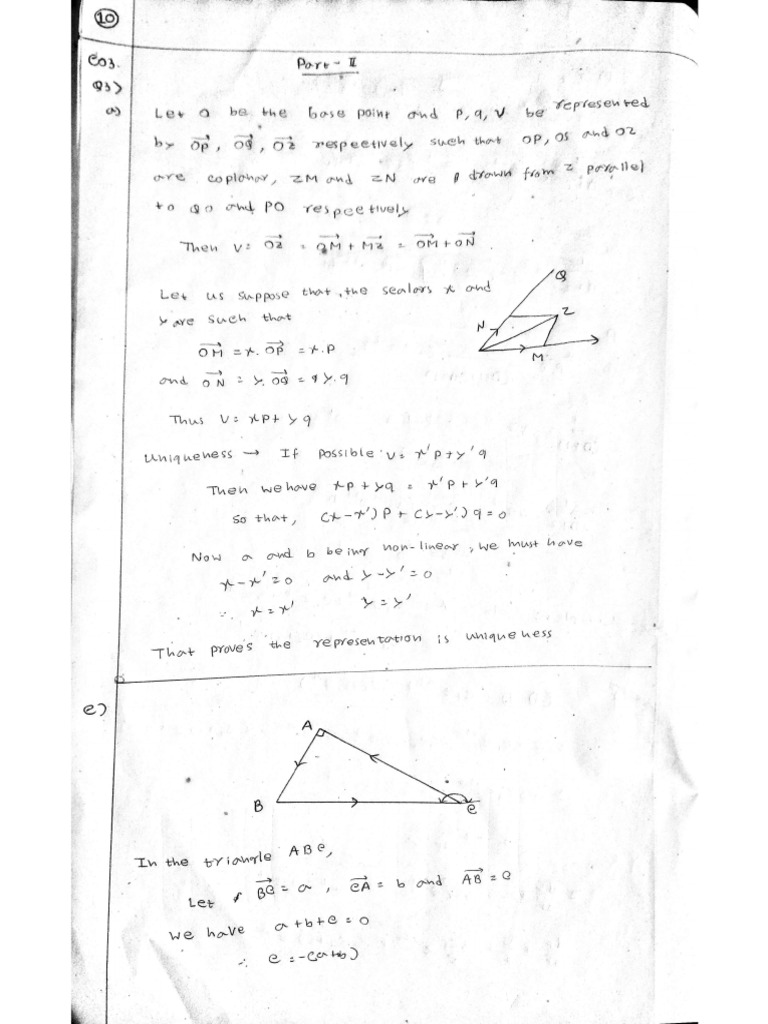 10
CO3.
Part - II
Q3>
a) Let O be the base point and P, q, V be represented
by OP, OQ, OZ respectively such that OP, OS and OZ
are coplanar, ZM and ZN are drawn from Z parallel
to QO and PO respectively
Then V = OZ = OM + MZ = OM + ON.
Let us suppose that, the scalars x and
y are such that
OM = x. OP = x.P
and ON = y. OQ = y.q
Q
N
Z
M
Thus V = xP + yq
Uniqueness → If possible V = x'P + y'q
Then we have xP + yq = x'P + y'q
So that, (x-x')P + (y-y')q = 0
Now a and b being non-linear, we must have
x-x' = 0 and y-y' = 0
∴ x = x' y = y'
That proves the representation is uniqueness
c)
A
B
C
In the triangle ABC,
Let BC = a, CA = b and AB = c
We have a+b+c = 0
∴ c = -(a+b)